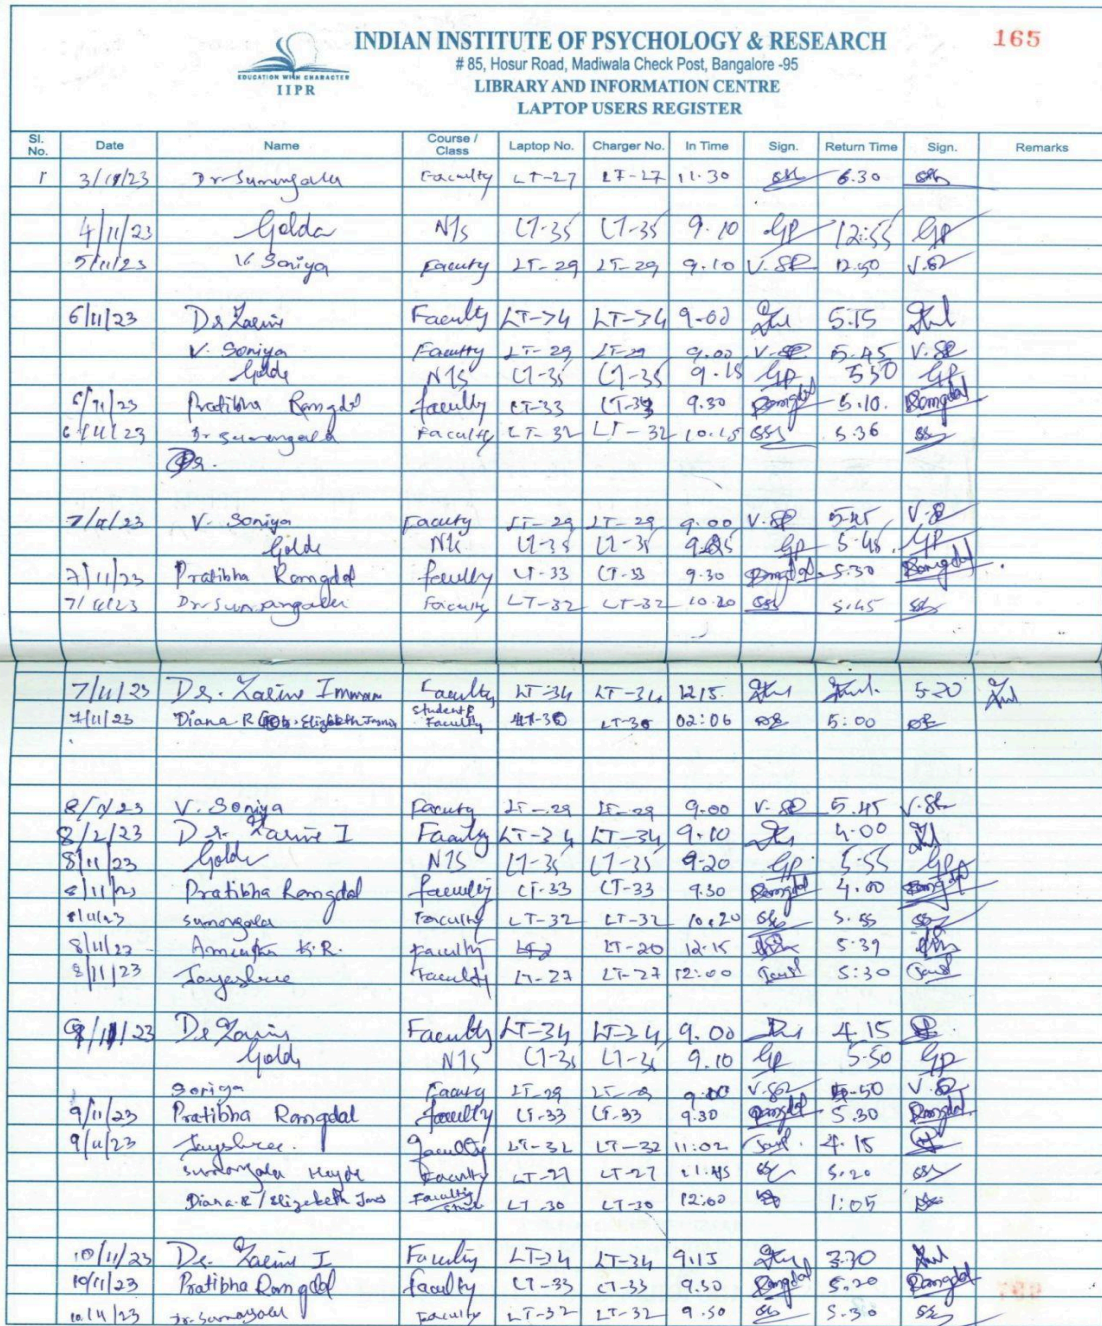 165
INDIAN INSTITUTE OF PSYCHOLOGY & RESEARCH
# 85, Hosur Road, Madiwala Check Post, Bangalore -95
EDUCATION WITH CHARACTER
IIPR
LIBRARY AND INFORMATION CENTRE
LAPTOP USERS REGISTER
Sl. No. Date Name Course / Class Laptop No. Charger No. In Time Sign. Return Time Sign. Remarks
1 3/11/23 Dr Sumangala Faculty LT-27 LT-27 11.30 6.30
4/11/23 Golda LT-35 LT-35 9.10 GP 12:55 GP
5/11/23 V Soniya Faculty LT-29 LT-29 9.10 V.SR 12.50 V.SR
6/11/23 Dr Zarine Faculty LT-34 LT-34 9.00 5.15
V. Soniya Faculty LT-29 LT-29 9.00 V.SR 5.45 V.SR
Golda LT-35 LT-35 9.15 GP 5.50 GP
6/11/23 Pratibha Rangdal faculty LT-33 LT-33 9.30 Rangdal 5.10. Rangdal
6/11/23 Dr Sumangala Faculty LT-32 LT-32 10.15 5.36
Dr.
7/11/23 V. Soniya Faculty LT-29 LT-29 9.00 V.SR 5.45 V.SR
Golda LT-35 LT-35 GP 5.45 GP
7/11/23 Pratibha Rangdal faculty LT-33 LT-33 9.30 Rangdal 5.30 Rangdal
7/11/23 Dr. Sumangala Faculty LT-32 LT-32 10.20 5.45
7/11/23 Dr. Zarine Imman Faculty LT-34 LT-34 12 15. 5.20
7/11/23 Diana R Elizabeth Student & Faculty LT-30 LT-30 02:06 5:00
8/11/23 V. Soniya Faculty LT-29 LT-29 9.00 V.SR 5.45 V.SR
8/2/23 Dr. Zarine I Faculty LT-34 LT-34 9.10 4.00
8/11/23 Golda LT-35 LT-35 9.20 GP 5.55 GP
8/11/23 Pratibha Rangdal faculty LT-33 LT-33 9.30 Rangdal 4.00 Rangdal
8/11/23 Sumangala Faculty LT-32 LT-32 10.20 5.55
8/11/23 K.R. Faculty LT-20 12.15 5.39
8/11/23 Jayashree Faculty LT-27 LT-27 12:00 5:30
9/11/23 Dr Zarine Faculty LT-34 LT-34 9.00 4.15
Golda LT-35 LT-35 9.10 GP 5.50 GP
Soniya Faculty LT-29 LT-29 9.00 V.SR 5.50 V.SR
9/11/23 Pratibha Rangdal faculty LT-33 LT-33 9.30 Rangdal 5.30 Rangdal
9/11/23 Jayshree. Faculty LT-32 LT-32 11:02 4.15
Sumangala Faculty LT-27 LT-27 11.45 5.20
Diana.R / Elizabeth Faculty LT-30 LT-30 12:00 1:05
10/11/23 Dr. Zarine I Faculty LT-34 LT-34 9.15 3.30
10/11/23 Pratibha Rangdal faculty LT-33 LT-33 9.30 Rangdal 5.20 Rangdal
10/11/23 Dr. Sumangala Faculty LT-32 LT-32 9.50 5.30